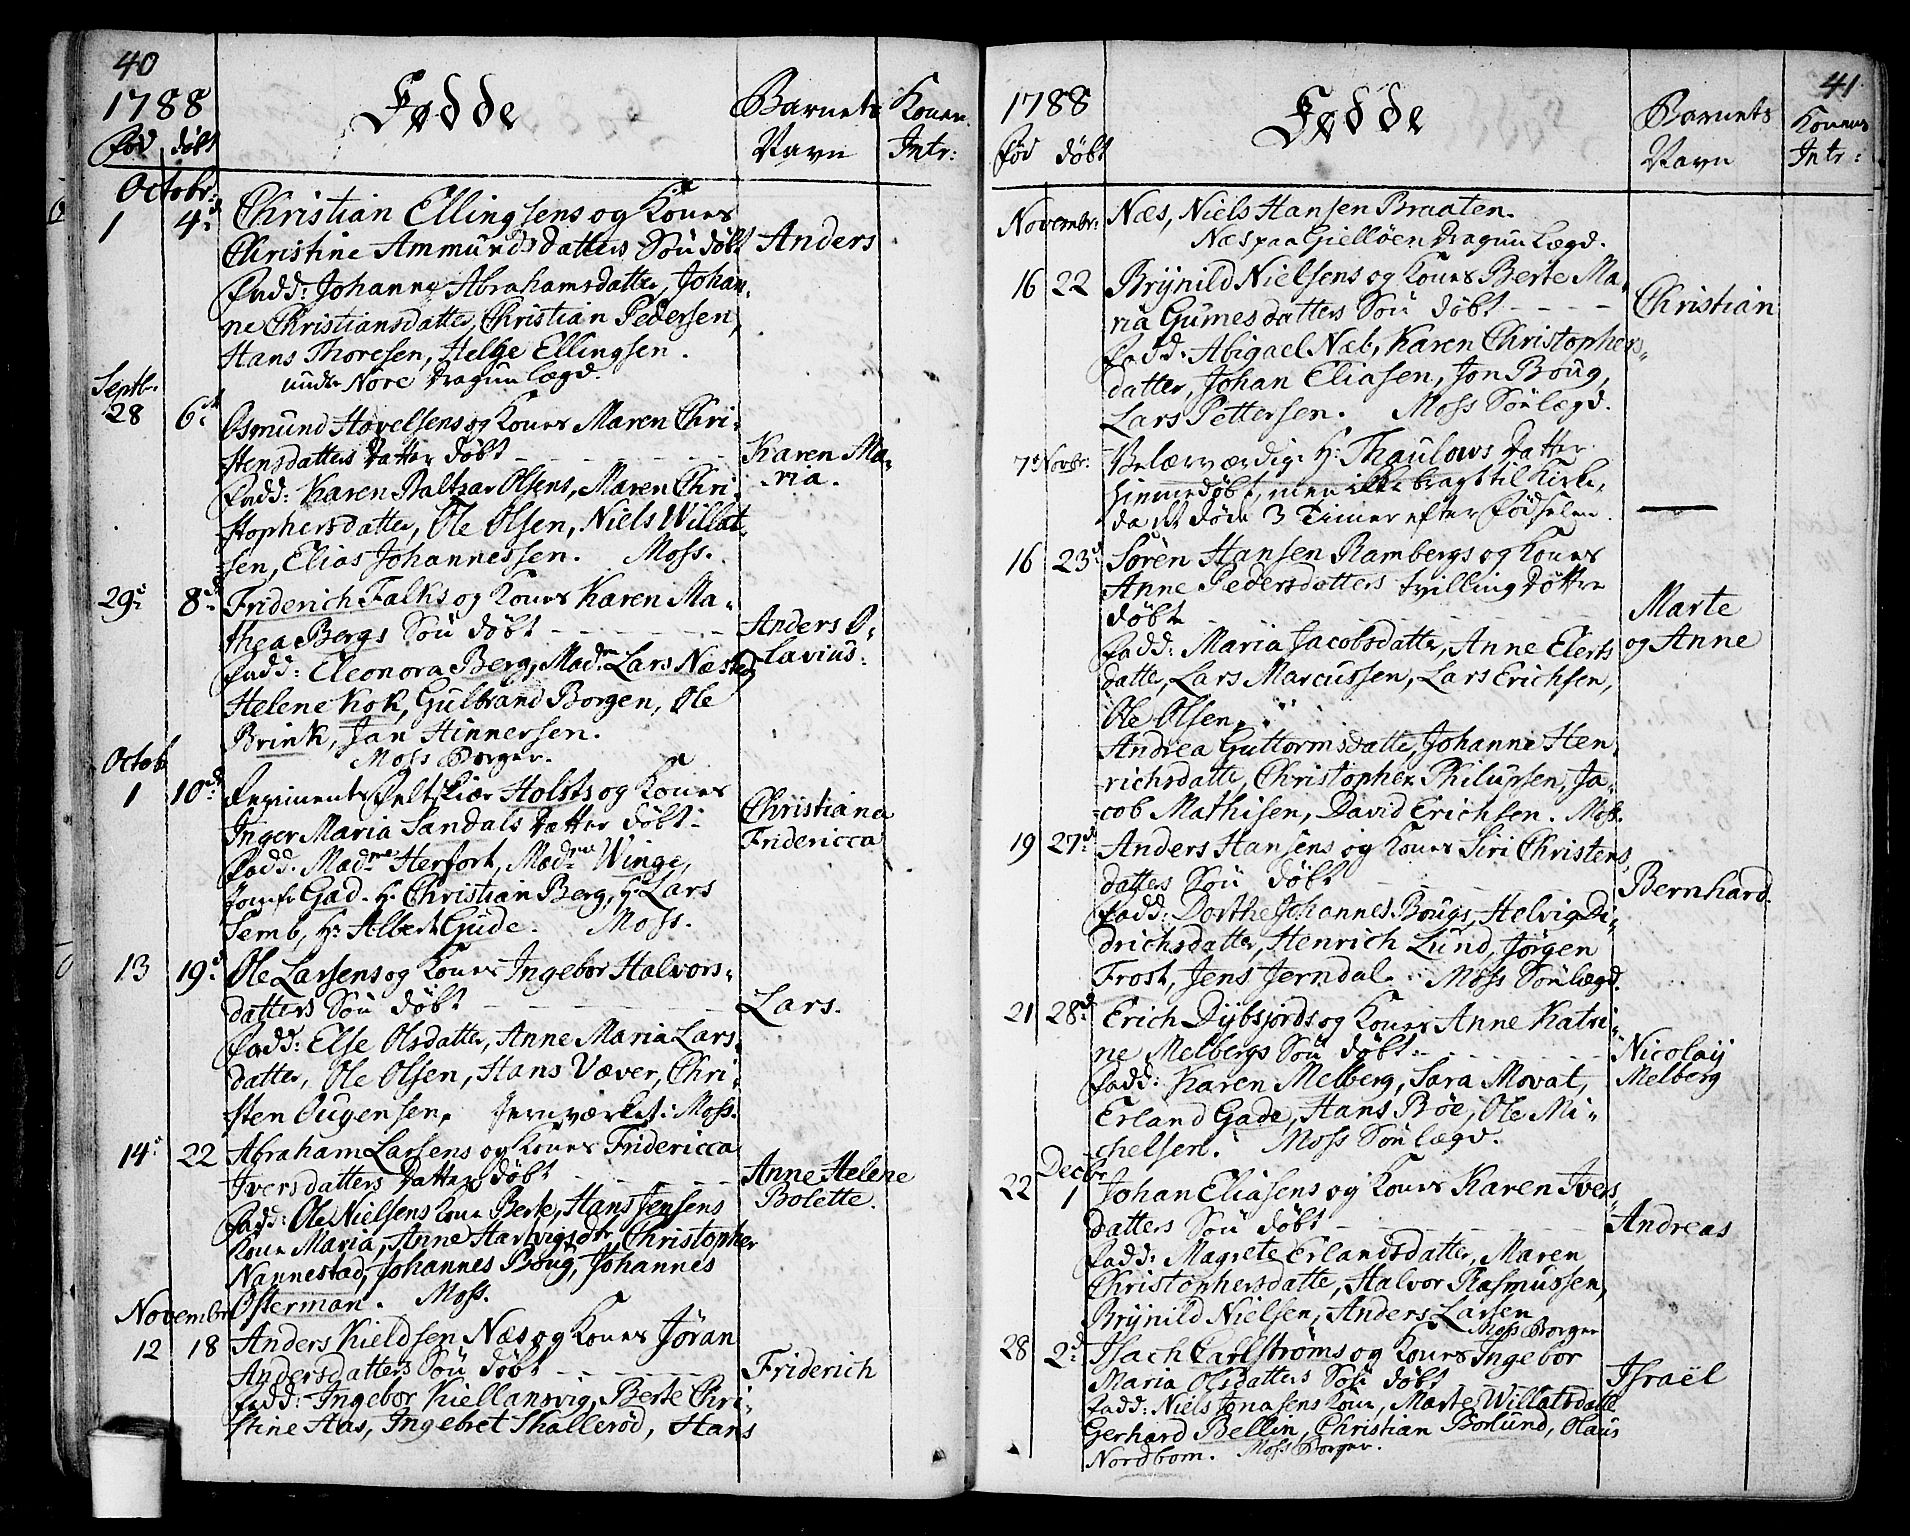 40
1788
Fødde
Barnets
Navn
Konen
Intr:
fød døbt
Octobr:
1 4d
Christian Ellingsens og Kones
Christine Ammundsdatters Søn døbt
Anders
Fadd: Johanne Abrahamsdatter, Johan-
ne Christiansdatter, Christian Pedersen,
Hans Thoresen, Helge Ellingsen.
under Nore Dragun lægd.
Septbr.
28 6d
Osmund Hovelsens og Kones Maren Chri-
stensdatters Datter døbt
Karen Ma-
ria.
Fadd: Karen Baltzar Olsens, Maren Chri-
stophersdatter, Ole Olsen, Niels Willat-
sen, Elias Johannessen. Moss.
29d 8d
Friderich Falks og Kones Karen Ma-
thea Bergs Søn døbt
Anders O-
lavius.
Fadd: Eleonora Berg, Madm Lars Næsted
Helene Kok, Gulbrand Borgen, Ole
Brink, Jan Hinnersen.
Moss Borger.
Octob
1 10d
Regiments Feltskiær Holsts og Kones
Inger Maria Sandals Datter døbt
Christiana
Fridericca
Fadd. Madme Herfort, Madme Winge,
Jomfr Gad. Hr Christian Berg, Hr Lars
Semb, Hr Albert Gude. Moss.
13 19d
Ole Larsens og Kones Ingebor Halvors-
datters Søn døbt
Lars.
Fadd: Else Olsdatter, Anne Maria Lars-
datter, Ole Olsen, Hans Væver, Chri-
sten Ougensen, Jernværket: Moss.
14d 22
Abraham Larsens og Kones Fridericca
Iversdatters Datter døbt
Anne Helene
Bolette.
Fadd: Ole Nielsens Kone Berte, Hans Jensens
Kone Maria, Anne Hartvigsdr, Christopher
Nannestad, Johannes Boug, Johannes
Osterman. Moss.
Novembr
12 18
Anders Kieldsen Næs og Kones Jøran
Andersdatters Søn døbt
Friderich
Fadd: Ingebor Kiellansvig, Berte Chri-
stine Has, Ingebret Skallerød, Hans
41
1788
Fødde
Barnets
Navn
Konens
Intr:
fød døbt
Novembr:
Næs, Niels Hansen Braaten.
Næs paa Gielløen Dragun Lægd.
16 22
Brÿnild Nielsens og Kones Berte Ma-
ria Gumesdatters Søn døbt
Christian
Fadd: Abigael Næb, Karen Christophers-
datter, Johan Eliasen, Jon Boug,
Lars Pettersen. Moss Sønlægd.
7d Novbr:
Velærværdig: Hr Thaulows Datter
Hiemmedøbt, men ikke bragt til Kirke,
da det døde 3 Timer efter Fødselen.
16 23d
Søren Hansen Rambergs og Kones
Anne Pedersdatters tvilling Døttre
døbt
Marte
og Anne
Fadd: Maria Jacobsdatter, Anne Elerts
datter, Lars Marcussen, Lars Erichsen,
Ole Olsen,
Andrea Guttormsdatter, Johanne Hen-
richsdatter, Christopher Philupsen, Ja-
cob Mathisen, David Erichsen. Moss.
19 27d
Anders Hansens og Kones Siri Christens
datters Søn døbt
Bernhard.
Fadd: Dorthe Johannes Bougs, Helvig Di-
drichsdatter, Henrich Lund, Jørgen
Frost, Jens Jerndal. Moss Sønlægd.
21 28d
Erich Dÿbsjords og Kones Anne Katri-
ne Melbergs Søn døbt
Nicolaÿ
Melberg
Fadd: Karen Melberg, Sara Movat,
Erland Gade, Hans Bøe, Ole Mi-
chelsen. Moss Sønlægd.
Decbr
22 1
Johan Eliasens og Kones Karen Ivers-
datters Søn døbt
Andreas
Fadd: Magrete Erlandsdatter, Maren
Christophersdatter, Halvor Rasmussen,
Brÿnild Nielsen, Anders Larsen
Moss Borger
28 2d
Isach Carlstrøms og Kones Ingebor
Maria Olsdatters Søn døbt
Israël
Fadd: Niels Jonasens Kone, Marte Willatsdatter
Gerhard Bellin, Christian Borlund, Olaus
Nordbom. Moss Borger.